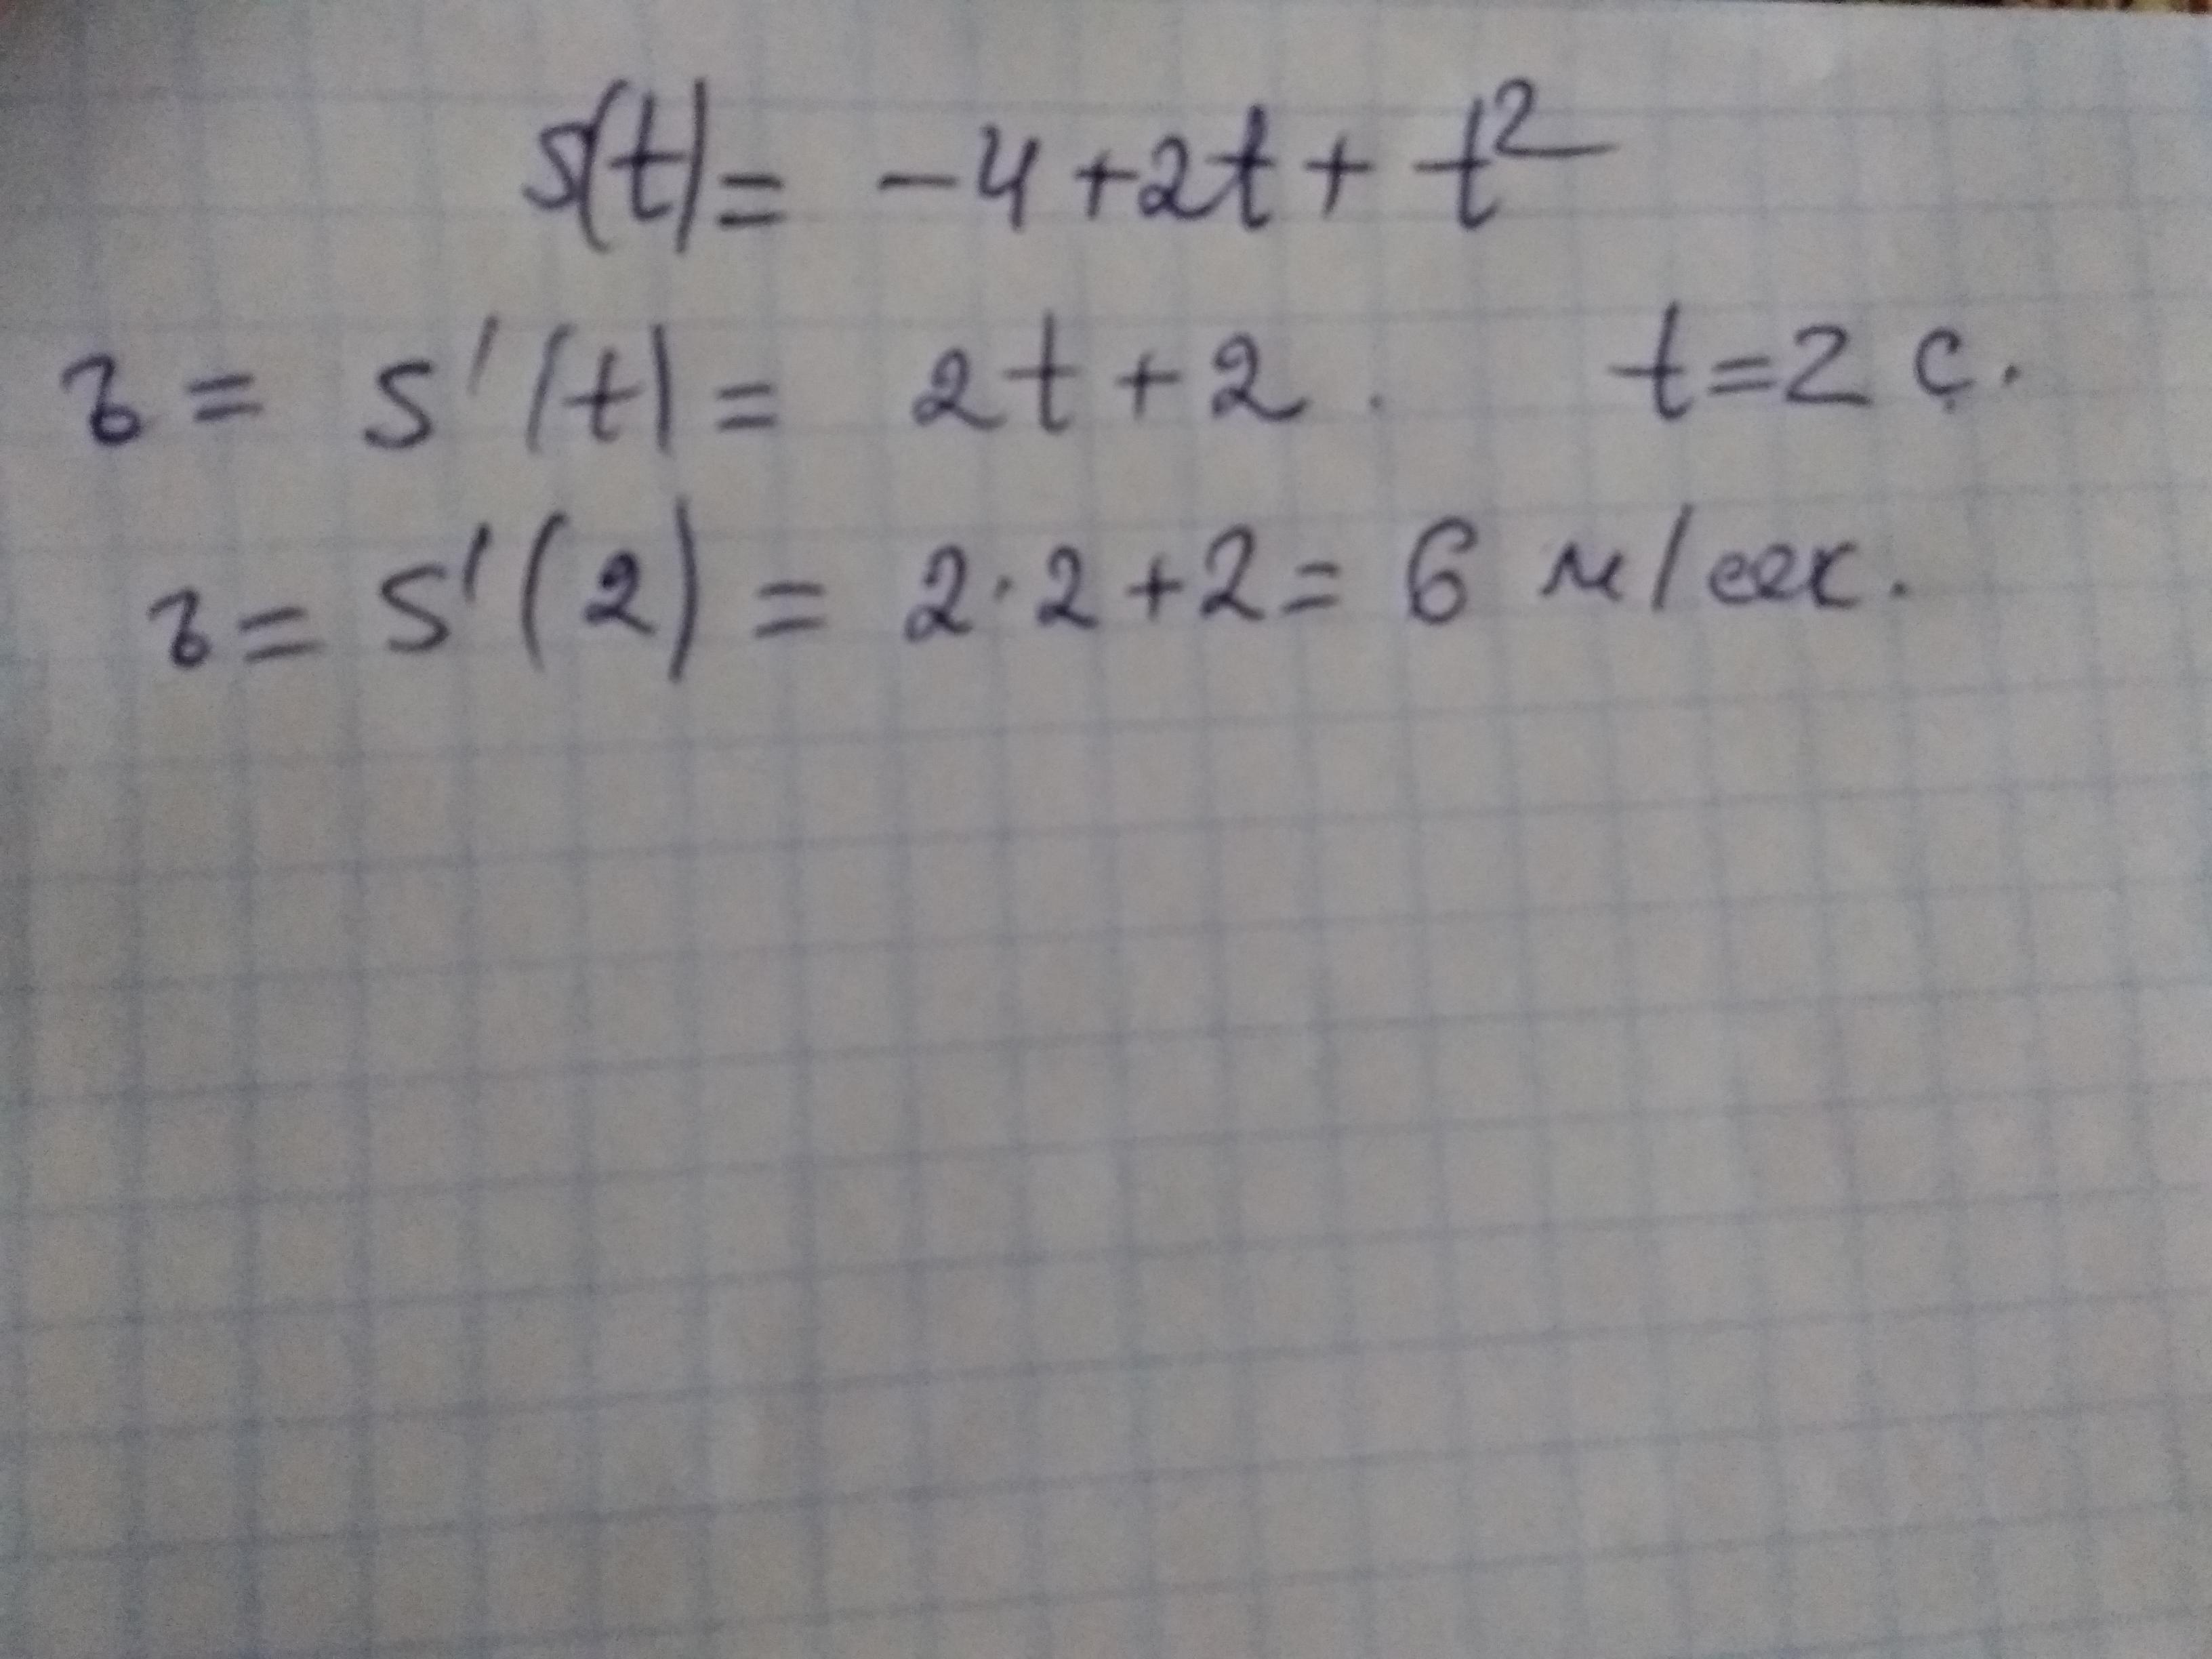 s(t) = -4 + 2t + t²
v = s'(t) = 2t + 2. t = 2 с.
v = s'(2) = 2·2 + 2 = 6 м/сек.